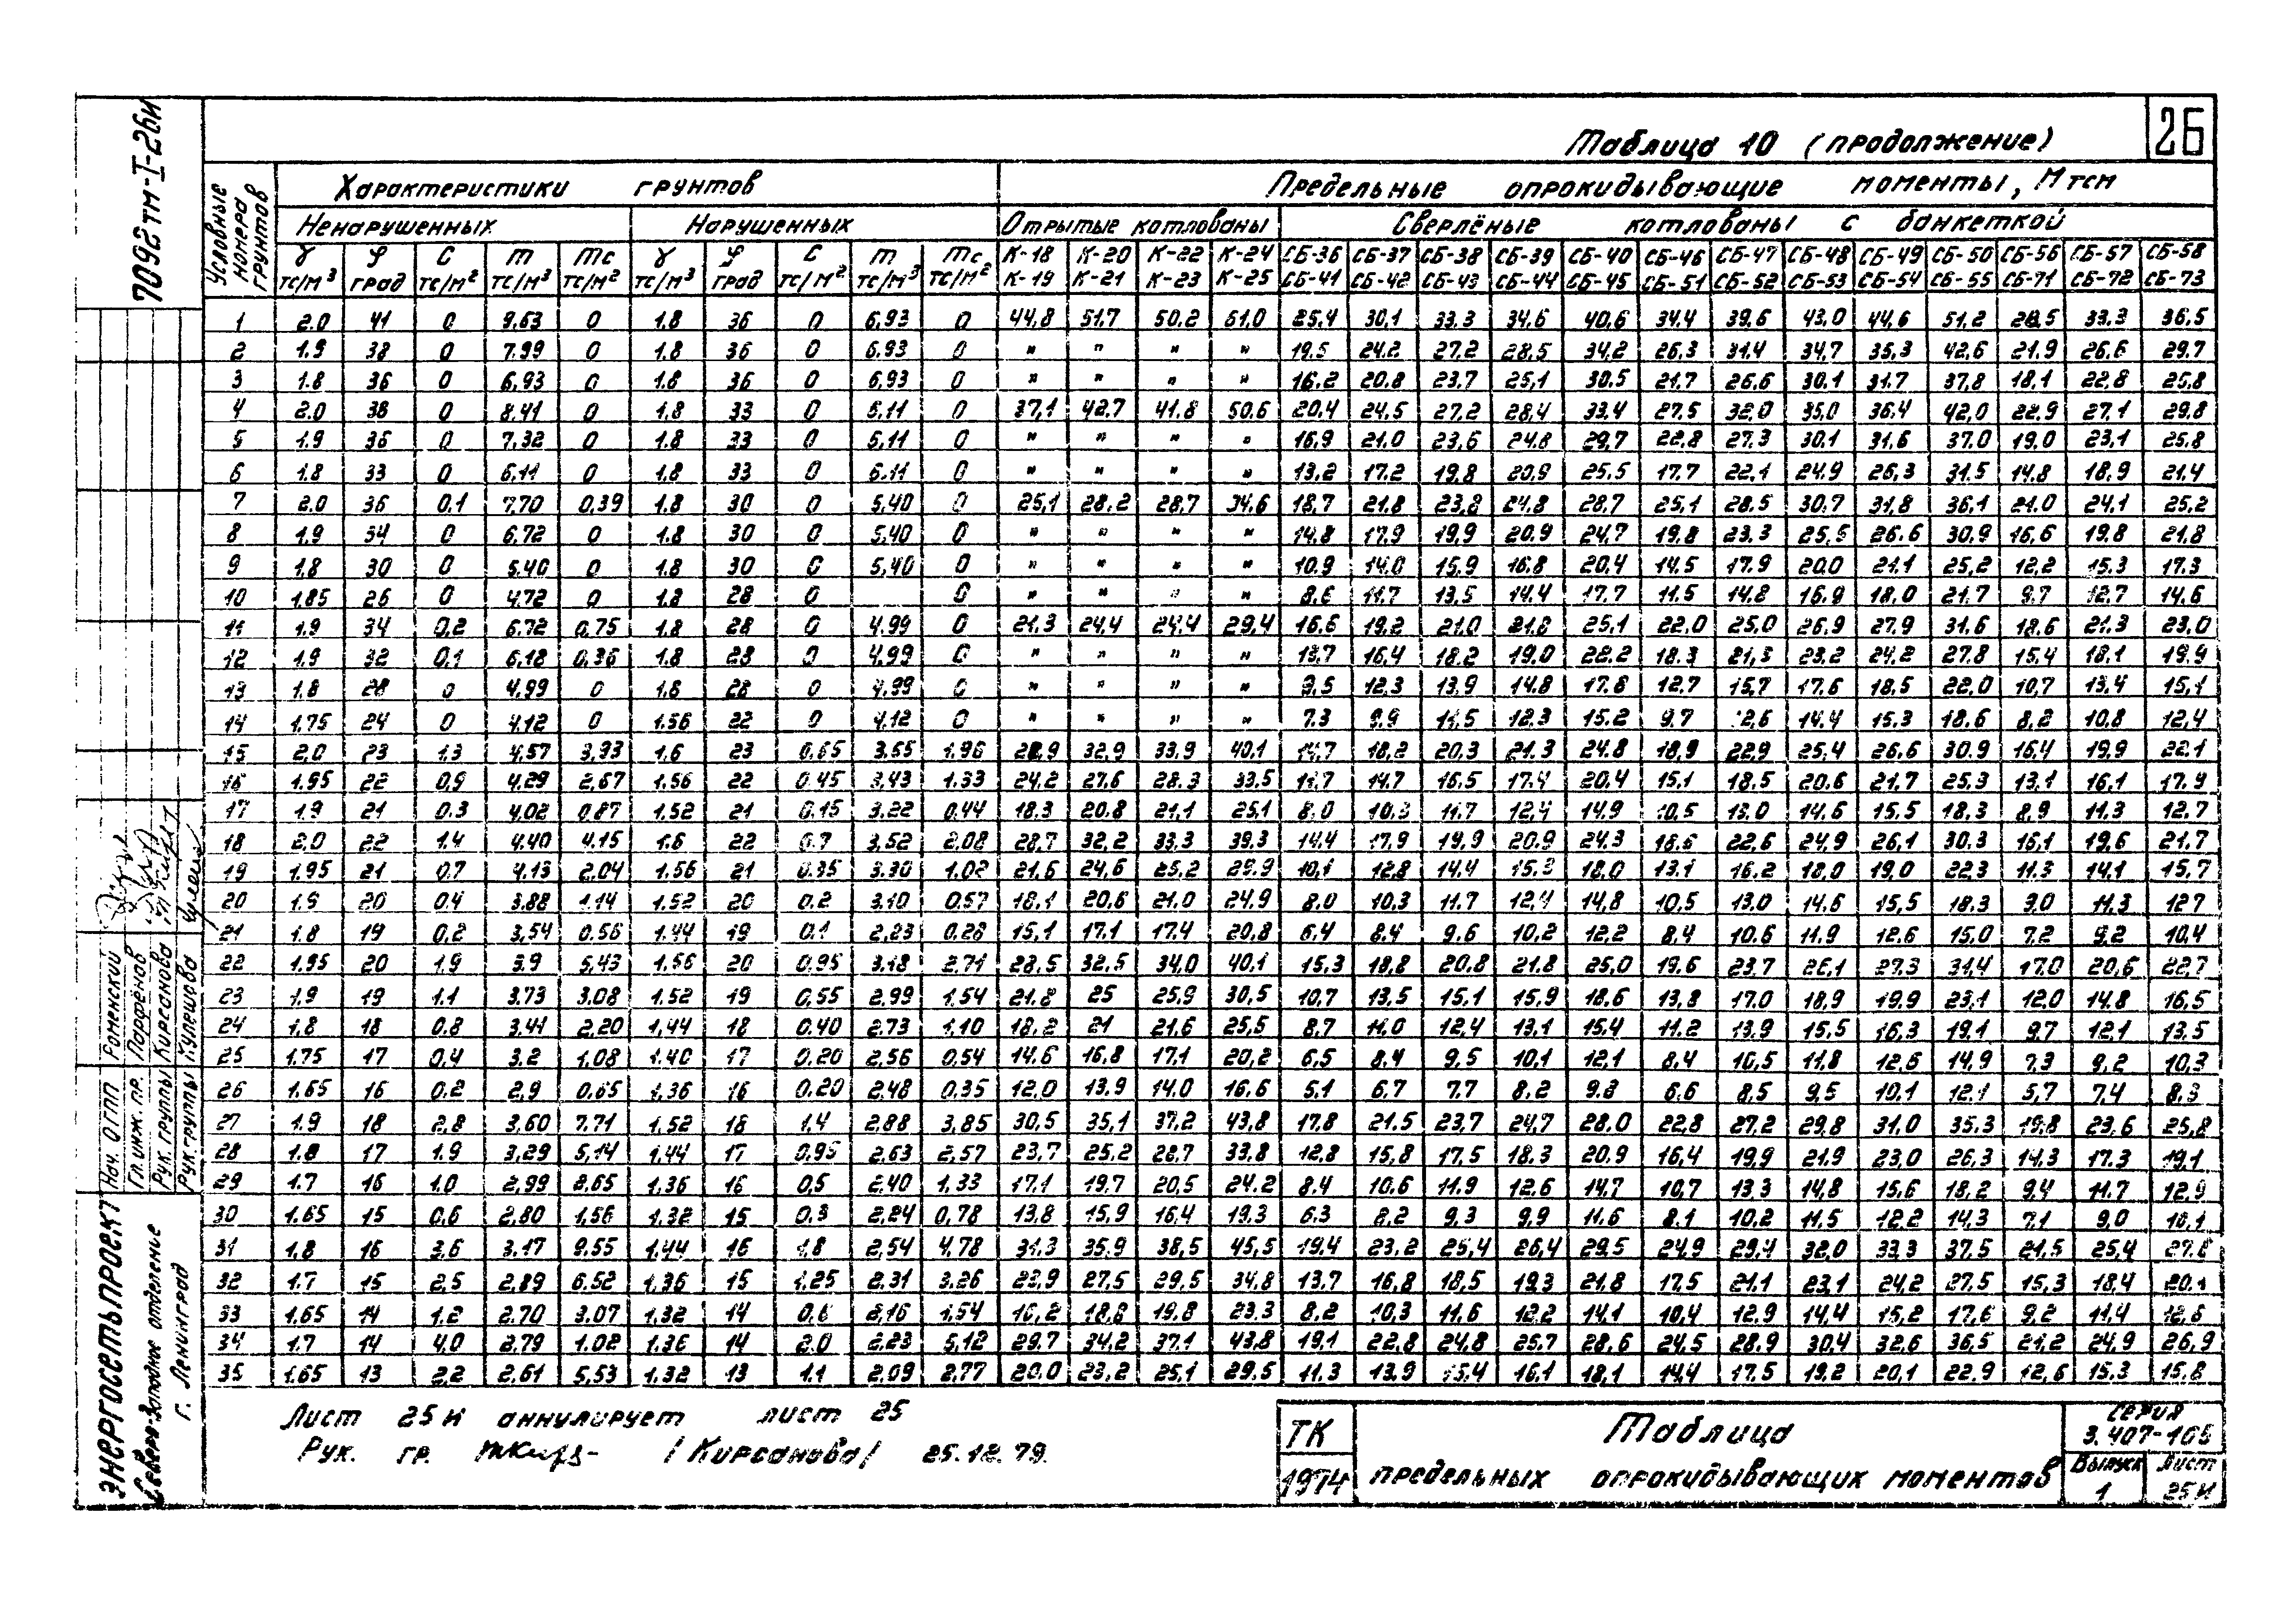 7092тм-I-26И
26
Таблица 10 (продолжение)
Условные номера грунтов
Характеристики грунтов
Предельные опрокидывающие моменты, М тсм
Ненарушенных
Нарушенных
Открытые котлованы
Сверлёные котлованы с банкеткой
γ φ C m mc γ φ C m mc К-18 К-20 К-22 К-24 СБ-36 СБ-37 СБ-38 СБ-39 СБ-40 СБ-46 СБ-47 СБ-48 СБ-49 СБ-50 СБ-56 СБ-57 СБ-58
тс/м³ град тс/м² тс/м³ тс/м² тс/м³ град тс/м² тс/м³ тс/м² К-19 К-21 К-23 К-25 СБ-41 СБ-42 СБ-43 СБ-44 СБ-45 СБ-51 СБ-52 СБ-53 СБ-54 СБ-55 СБ-71 СБ-72 СБ-73
1 2.0 41 0 9,63 0 1.8 36 0 6,93 0 44,8 51,7 50.2 61.0 25,4 30,1 33.3 34,6 40,6 34.4 39,6 43,0 44,6 51,2 28,5 33.3 36,5
2 1.9 38 0 7.99 0 1.8 36 0 6.93 0 " " " " 19.5 24.2 27,2 28,5 34,2 26,3 31,4 34,7 35,3 42,6 21.9 26.6 29.7
3 1.8 36 0 6,93 0 1.8 36 0 6,93 0 " " " " 16,2 20,8 23.7 25,1 30,5 21.7 26.6 30.1 31.7 37,8 18,1 22,8 25,8
4 2.0 38 0 8.41 0 1.8 33 0 6.11 0 37,1 42.7 41.8 50.6 20,4 24,5 27.2 28,4 33,4 27.5 32,0 35,0 36,4 42,0 22.9 27.1 29.8
5 1.9 36 0 7,32 0 1.8 33 0 6,11 0 " " " " 16,9 21.0 23,6 24.8 29,7 22.8 27.3 30,1 31,6 37.0 19,0 23,1 25.8
6 1.8 33 0 6.11 0 1.8 33 0 6.11 0 " " " " 13,2 17,2 19,8 20,9 25,5 17.7 22,1 24.9 26,3 31.5 14,8 18,9 21,4
7 2.0 36 0.1 7,70 0,39 1.8 30 0 5,40 0 25,1 28,2 28,7 34,6 18,7 21,8 23,8 24,8 28,7 25,1 28,5 30,7 31,8 36,1 21.0 24,1 25,2
8 1.9 34 0 6.72 0 1.8 30 0 5,40 0 " " " " 14,8 17,9 19,9 20.9 24,7 19,8 23,3 25,5 26.6 30,9 16,6 19.8 21,8
9 1.8 30 0 5.40 0 1.8 30 0 5,40 0 " " " " 10.9 14.0 15.9 16.8 20,4 14.5 17.9 20.0 21.1 25,2 12,2 15.3 17.3
10 1.85 26 0 4.72 0 1.8 28 0 0 " " " " 8.6 11.7 13.5 14.4 17.7 11.5 14.8 16.9 18.0 21.7 9.7 12.7 14.6
11 1.9 34 0.2 6.72 0.75 1.8 28 0 4.99 0 21.3 24.4 24.4 29.4 16.6 19.2 21.0 21.8 25.1 22.0 25.0 26.9 27.9 31.6 18.6 21.3 23.0
12 1.9 32 0.1 6.18 0.36 1.8 28 0 4.99 0 " " " " 13.7 16,4 18.2 19.0 22.2 18.3 21.3 23.2 24.2 27.8 15,4 18.1 19.9
13 1.8 28 0 4.99 0 1.6 28 0 4.99 0 " " " " 9.5 12.3 13.9 14.8 17.8 12.7 15.7 17.6 18.5 22.0 10,7 13.4 15,1
14 1,75 24 0 4.12 0 1.56 22 0 4.12 0 " " " " 7.3 9.9 11.5 12.3 15.2 9.7 12.6 14.4 15.3 18.6 8,2 10,8 12,4
15 2.0 23 1.3 4,57 3,93 1.6 23 0,65 3,65 1,96 28,9 32,9 33,9 40,1 14,7 18,2 20,3 21.3 24.8 18,9 22,9 25,4 26.6 30.9 16,4 19,9 22.1
16 1.95 22 0,9 4.29 2,67 1.56 22 0,45 3,43 1.33 24.2 27,6 28.3 33.5 11.7 14.7 16.5 17.4 20.4 15.1 18.5 20.6 21.7 25.3 13,1 16,1 17.9
17 1.9 21 0.3 4.02 0.87 1.52 21 0,15 3.22 0.44 18.3 20.8 21.1 25,1 8,0 10,3 11.7 12,4 14.9 10,5 13.0 14.6 15.5 18.3 8,9 11,3 12.7
18 2,0 22 1.4 4.40 4.15 1.6 22 0.7 3,52 2.08 28,7 32,2 33.3 39,3 14,4 17,9 19,9 20.9 24.3 18.6 22.6 24,9 26.1 30,3 16,1 19,6 21.7
19 1.95 21 0.7 4.13 2.04 1.56 21 0.35 3.30 1.02 21.6 24,6 25.2 29.9 10.1 12.8 14.4 15.3 18.0 13.1 16.2 18.0 19.0 22.3 11.3 14.1 15.7
20 1.9 20 0.4 3.88 1.14 1.52 20 0.2 3.10 0.57 18.1 20,6 21.0 24.9 8.0 10,3 11.7 12,4 14.8 10,5 13.0 14.6 15,5 18.3 9.0 11.3 127
21 1.8 19 0,2 3,54 0.56 1.44 19 0.1 2,23 0.28 15,1 17.1 17.4 20,8 6.4 8.4 9.6 10,2 12.2 8,4 10.6 11.9 12.6 15.0 7.2 9.2 10,4
22 1.95 20 1.9 3.9 5,43 1.56 20 0,95 3.18 2.71 28,5 32,5 34,0 40,1 15,3 18,8 20.8 21.8 25,0 19.6 23.7 26,1 27.3 31,4 17.0 20,6 22,7
23 1.9 19 1.1 3.73 3,08 1.52 19 0,55 2.99 1.54 21,8 25 25,9 30,5 10,7 13,5 15,1 15,9 18,6 13,8 17.0 18.9 19.9 23,1 12,0 14,8 16,5
24 1,8 18 0.8 3.41 2.20 1,44 18 0.40 2.73 1.10 18,2 21 21,6 25,5 8,7 11,0 12,4 13.1 15,4 11.2 13.9 15,5 16,3 19,1 9.7 12,1 13,5
25 1.75 17 0,4 3.2 1.08 1.40 17 0.20 2,56 0,54 14.6 16,8 17.1 20,2 6,5 8.4 9,5 10,1 12,1 8,4 10,5 11.8 12,6 14,9 7,3 9,2 10,3
26 1.65 16 0,2 2,9 0.65 1,36 16 0,20 2,48 0,35 12,0 13,9 14.0 16,6 5.1 6,7 7.7 8,2 9.8 6,6 8,5 9,5 10,1 12,1 5,7 7,4 8,3
27 1,9 18 2,8 3,60 7.71 1,52 18 1,4 2.88 3,85 30,5 35,1 37,2 43,8 17,8 21.5 23,7 24,7 28,0 22,8 27,2 29,8 31.0 35.3 19,8 23,6 25,8
28 1.8 17 1.9 3.29 5,14 1,44 17 0,95 2,63 2,57 23.7 25,2 28.7 33,8 12,8 15,8 17,5 18.3 20,9 16,4 19,9 21.9 23,0 26,3 14,3 17.3 19,1
29 1.7 16 1.0 2,99 2.65 1,36 16 0,5 2.40 1,33 17.1 19,7 20,5 24.2 8.4 10,6 11.9 12.6 14,7 10,7 13.3 14,8 15,6 18,2 9,4 11.7 12,9
30 1.65 15 0.6 2.80 1,56 1.32 15 0.3 2,24 0,78 13,8 15,9 16.4 19,3 6.3 8,2 9,3 9,9 11,6 8.1 10,2 11,5 12.2 14,3 7,1 9,0 10,1
31 1,8 16 3.6 3.17 9.55 1,44 16 1,8 2,54 4,78 31,3 35,9 38,5 45,5 19,4 23,2 25,4 26,4 29,5 24,9 29,4 32,0 33,3 37,5 21,5 25,4 27.8
32 1.7 15 2,5 2,89 6.52 1,36 15 1,25 2,31 3.26 23,9 27,5 29.5 34,8 13,7 16,8 18,5 19,3 21,8 17,5 21,1 23,1 24,2 27,5 15,3 18,4 20.1
33 1.65 14 1,2 2.70 3.07 1,32 14 0,6 2,16 1,54 16,2 18,8 19,8 23.3 8,2 10,3 11,6 12,2 14,1 10,4 12,9 14,4 15,2 17,6 9,2 11,4 12,6
34 1.7 14 4,0 2.79 1.02 1.36 14 2.0 2.23 5,12 29.7 34,2 37.1 43,8 19,1 22,8 24,8 25.7 28,6 24,5 28.9 30,4 32,6 36,5 21,2 24,9 26,9
35 1.65 13 2,2 2.61 5,53 1,32 13 1.1 2,09 2,77 20.0 23,2 25,1 29.5 11,3 13,9 15,4 16,1 18,1 14,4 17,5 19,2 20,1 22,9 12,6 15.3 15,8
Нач. ОТПП Роменский
Гл. инж. пр. Парфёнов
Рук. группы Кирсанова
Рук. группы Кулешова
ЭНЕРГОСЕТЬПРОЕКТ
Северо-Западное отделение
г. Ленинград
Лист 25И аннулирует лист 25
Рук. гр. /Кирсанова/ 25.12.79.
ТК
1974
Таблица
предельных опрокидывающих моментов
Серия
3.407-105
Выпуск Лист
1 25И